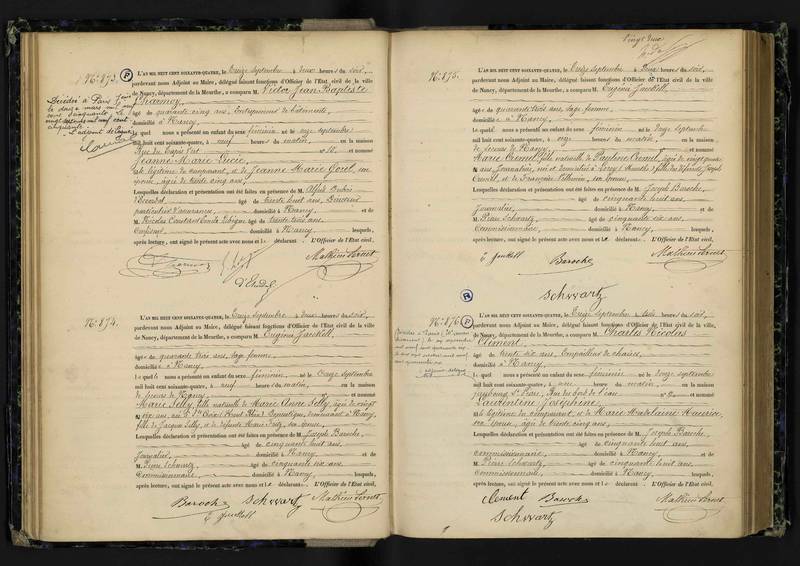 N° 873.
L'AN MIL HUIT CENT SOIXANTE-QUATRE, le treize septembre à deux heures du soir,
pardevant nous Adjoint au Maire, délégué faisant fonctions d'Officier de l'État civil de la ville
de Nancy, département de la Meurthe, a comparu M. Victor Jean Baptiste
Charmoy,
âgé de quarante cinq ans, Entrepreneur de bâtiments,
domicilié à Nancy,
lequel nous a présenté un enfant du sexe féminin né le onze septembre
mil huit cent soixante-quatre, à neuf heures du matin, en la maison
Rue du Tapis Vert n° 10, et nommé
Jeanne Marie Lucie,
de légitime du comparant, et de Jeanne Marie
épouse, âgée de trente cinq ans,
Lesquelles déclaration et présentation ont été faites en présence de M. Alfred
âgé de trente huit ans, Directeur
particulier d'assurance, domicilié à Nancy, et de
M. Nicolas Constant âgé de trente trois ans,
Employé, domicilié à Nancy, lesquels,
après lecture, ont signé le présent acte avec nous et le déclarant. L'Officier de l'État civil,
Décédée à Paris
le douze mars mil neuf
cent cinquante. Le
vingt mil neuf cent
cinquante.
L'adjoint délégué
N° 874.
L'AN MIL HUIT CENT SOIXANTE-QUATRE, le treize septembre à deux heures du soir,
pardevant nous Adjoint au Maire, délégué faisant fonctions d'Officier de l'État civil de la ville
de Nancy, département de la Meurthe, a comparu M. Eugénie
âgée de quarante trois ans, sage femme,
domiciliée à Nancy,
laquelle nous a présenté un enfant du sexe féminin, né le onze septembre
mil huit cent soixante-quatre, à neuf heures du matin, en la maison
de secours de Nancy,
Marie Selly, fille naturelle de Marie Anne Selly, âgée de vingt
six ans, née à Ste Croix (Haut Rhin) Domestique, demeurant à Nancy,
fille de Jacques Selly, et de défunte Marie son épouse,
Lesquelles déclaration et présentation ont été faites en présence de M. Joseph Baroche,
âgé de cinquante huit ans,
Journalier, domicilié à Nancy et de
M. Pierre Schwartz, âgé de cinquante six ans,
Commissionnaire, domicilié à Nancy, lesquels,
après lecture, ont signé le présent acte avec nous et la déclarant. L'Officier de l'État civil,
Baroche Schwartz
Vingt deux
N° 875.
L'AN MIL HUIT CENT SOIXANTE-QUATRE, le treize septembre à deux heures du soir,
pardevant nous Adjoint au Maire, délégué faisant fonctions d'Officier de l'État civil de la ville
de Nancy, département de la Meurthe, a comparu M. Eugénie
âgée de quarante trois ans, sage femme,
domiciliée à Nancy,
laquelle nous a présenté un enfant du sexe féminin né le onze septembre
mil huit cent soixante-quatre, à onze heures du matin, en la maison
de secours de Nancy,
Marie fille naturelle de Pauline âgée de vingt quatre
ans, Journalière, née et domiciliée à Leroy (Meurthe) fille des défunts Joseph
et de Françoise son épouse,
Lesquelles déclaration et présentation ont été faites en présence de M. Joseph Baroche,
âgé de cinquante huit ans,
Journalier, domicilié à Nancy, et de
M. Pierre Schwartz, âgé de cinquante six ans,
Commissionnaire, domicilié à Nancy, lesquels,
après lecture, ont signé le présent acte avec nous et la déclarant. L'Officier de l'État civil,
Baroche
Schwartz
N° 876
L'AN MIL HUIT CENT SOIXANTE-QUATRE, le treize septembre à trois heures du soir,
pardevant nous Adjoint au Maire, délégué faisant fonctions d'Officier de l'État civil de la ville
de Nancy, département de la Meurthe, a comparu M. Charles Nicolas
Clément,
âgé de trente six ans, Empailleur de chaises,
domicilié à Nancy,
lequel nous a présenté un enfant du sexe féminin né le onze septembre
mil huit cent soixante-quatre, à une heure du matin, en la maison
faubourg St Pierre, n° 2 et nommé
Joséphine,
de légitime du comparant, et de Marie Madelaine
son épouse, âgée de trente cinq ans,
Lesquelles déclaration et présentation ont été faites en présence de M. Joseph Baroche,
âgé de cinquante huit ans,
commissionnaire, domicilié à Nancy, et de
M. Pierre Schwartz, âgé de cinquante six ans,
Commissionnaire, domicilié à Nancy, lesquels,
après lecture, ont signé le présent acte avec nous et le déclarant. L'Officier de l'État civil,
Clement Baroche
Schwartz